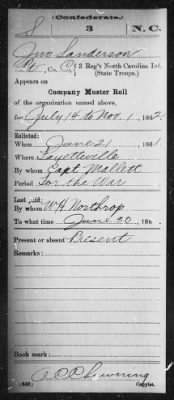 (Confederate.)
S 3 N.C.
Jno Sanderson
, Co. C, 3 Reg't North Carolina Inf.
(State Troops.)
Appears on
Company Muster Roll
of the organization named above,
for July 14 to Nov. 1, 1862.
Enlisted:
When June 21, 1861.
Where Fayetteville
By whom Capt Mallett
Period For the War
Last paid:
By whom W H Northrop
To what time June 30, 186 .
Present or absent Present
Remarks:
Book mark:
(642) Copyist.